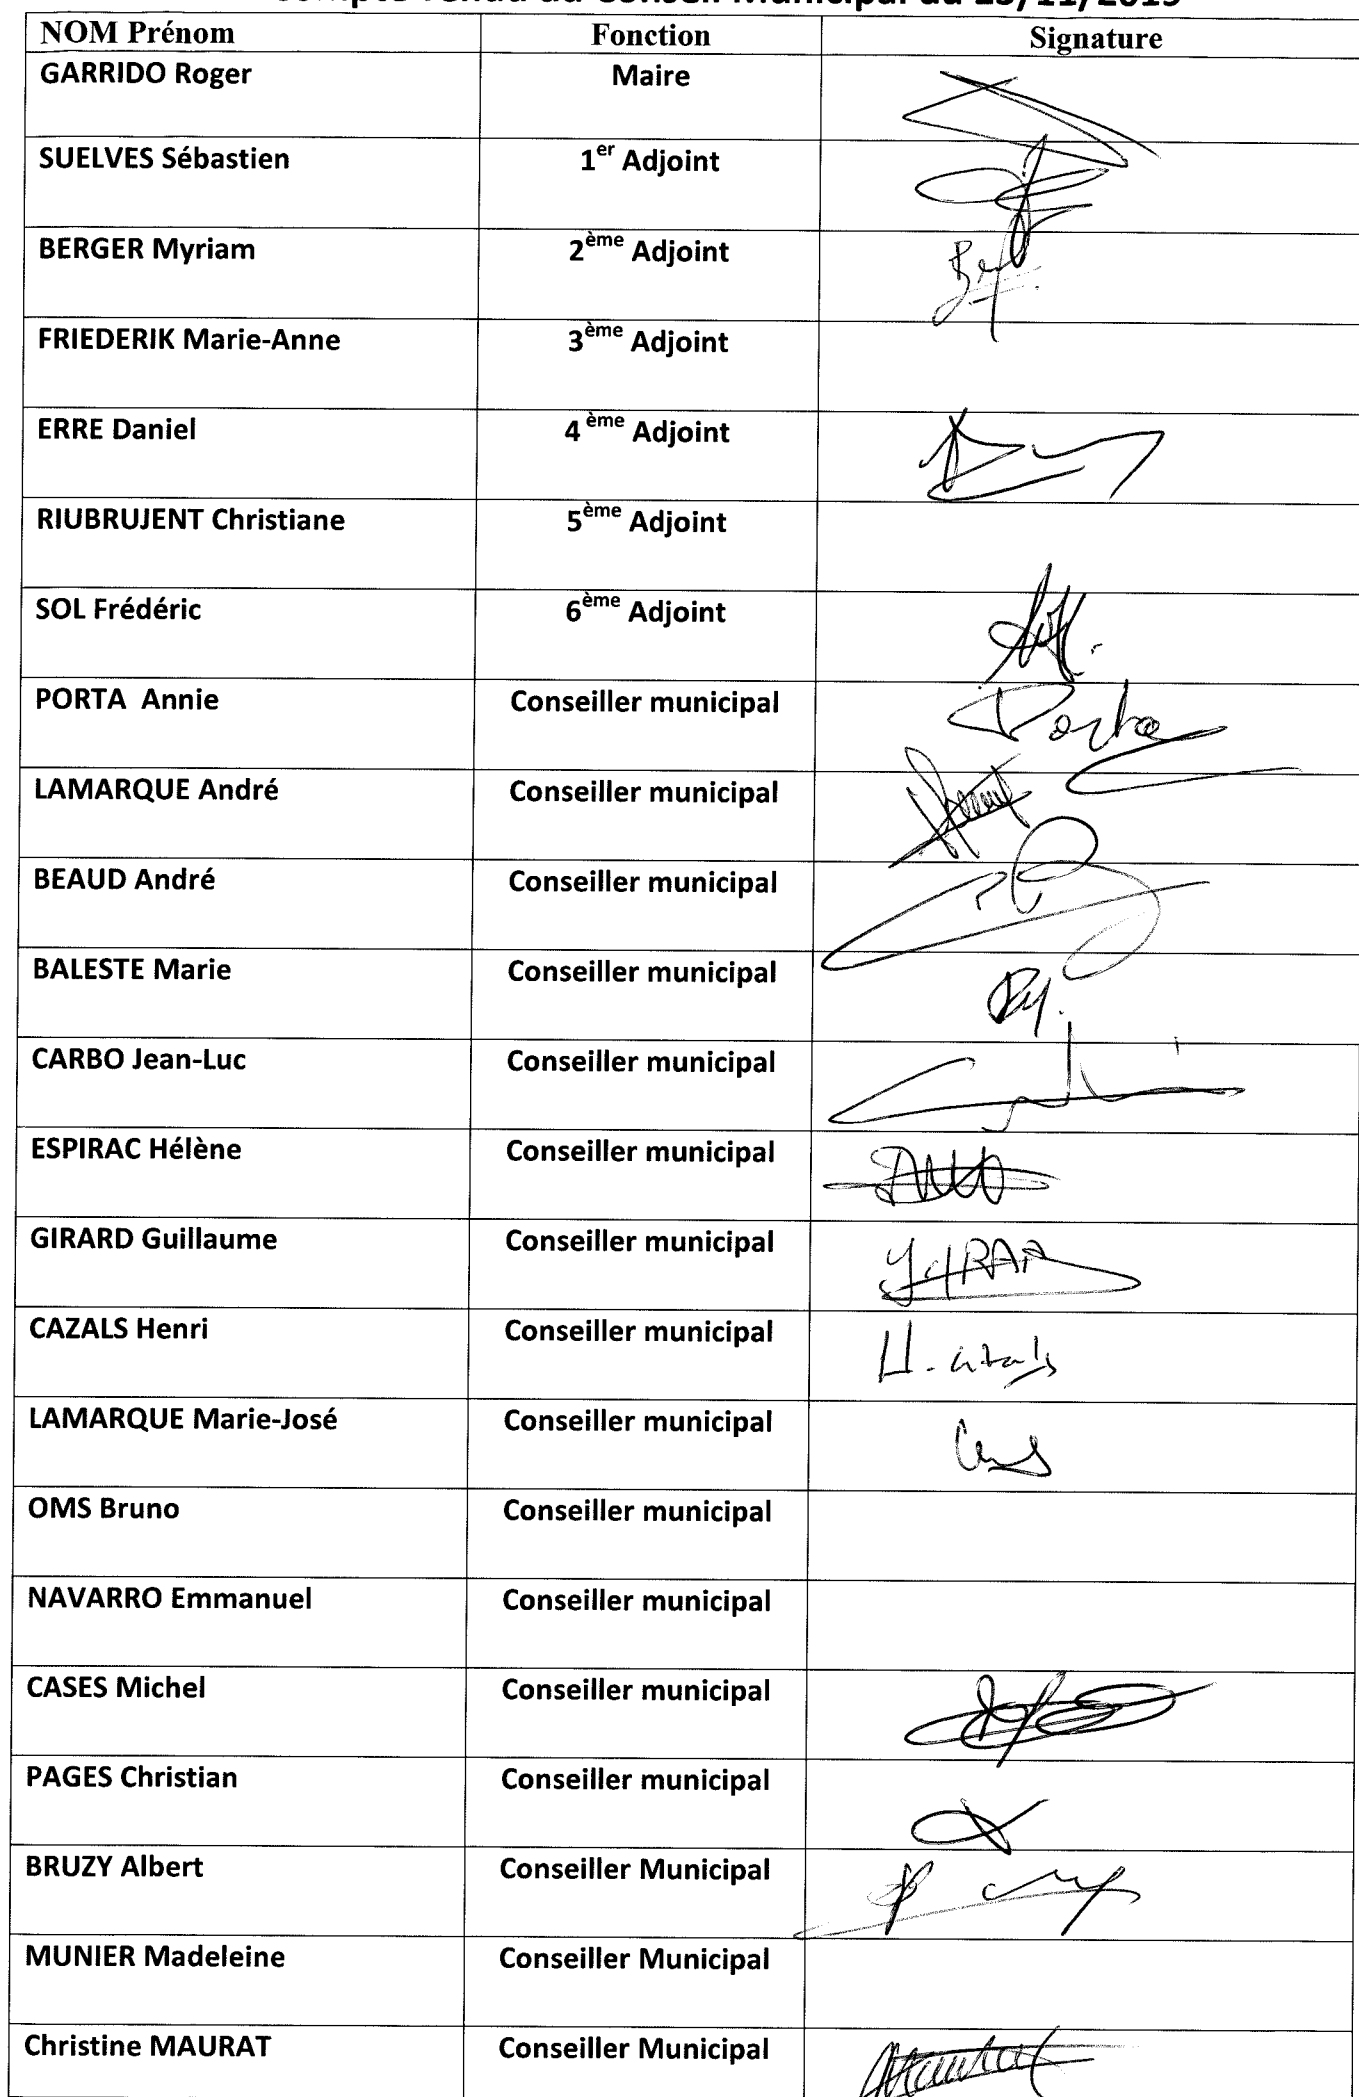 NOM Prénom Fonction Signature
GARRIDO Roger Maire
SUELVES Sébastien 1er Adjoint
BERGER Myriam 2ème Adjoint
FRIEDERIK Marie-Anne 3ème Adjoint
ERRE Daniel 4 ème Adjoint
RIUBRUJENT Christiane 5ème Adjoint
SOL Frédéric 6ème Adjoint
PORTA Annie Conseiller municipal Porta
LAMARQUE André Conseiller municipal
BEAUD André Conseiller municipal
BALESTE Marie Conseiller municipal
CARBO Jean-Luc Conseiller municipal
ESPIRAC Hélène Conseiller municipal
GIRARD Guillaume Conseiller municipal
CAZALS Henri Conseiller municipal
LAMARQUE Marie-José Conseiller municipal
OMS Bruno Conseiller municipal
NAVARRO Emmanuel Conseiller municipal
CASES Michel Conseiller municipal
PAGES Christian Conseiller municipal
BRUZY Albert Conseiller Municipal
MUNIER Madeleine Conseiller Municipal
Christine MAURAT Conseiller Municipal